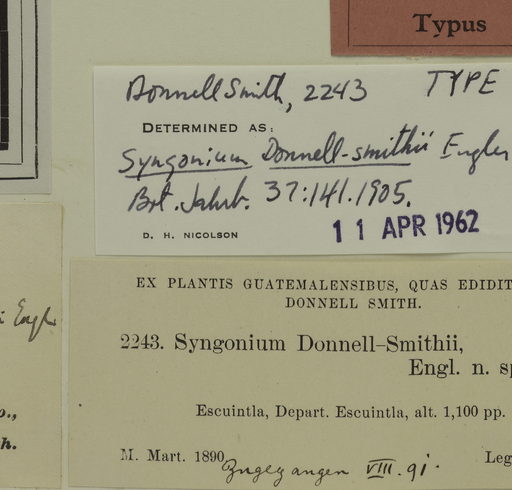 Typus
Donnell Smith, 2243 TYPE
DETERMINED AS:
Syngonium Donnell-smithii Engler
Bot. Jahrb. 37:141.1905.
D. H. NICOLSON
11 APR 1962
EX PLANTIS GUATEMALENSIBUS, QUAS EDIDIT
DONNELL SMITH.
2243. Syngonium Donnell-Smithii,
Engl. n. sp
Escuintla, Depart. Escuintla, alt. 1,100 pp.
M. Mart. 1890 Leg
Eingegangen VIII.91.
i Engl
o.,
h.